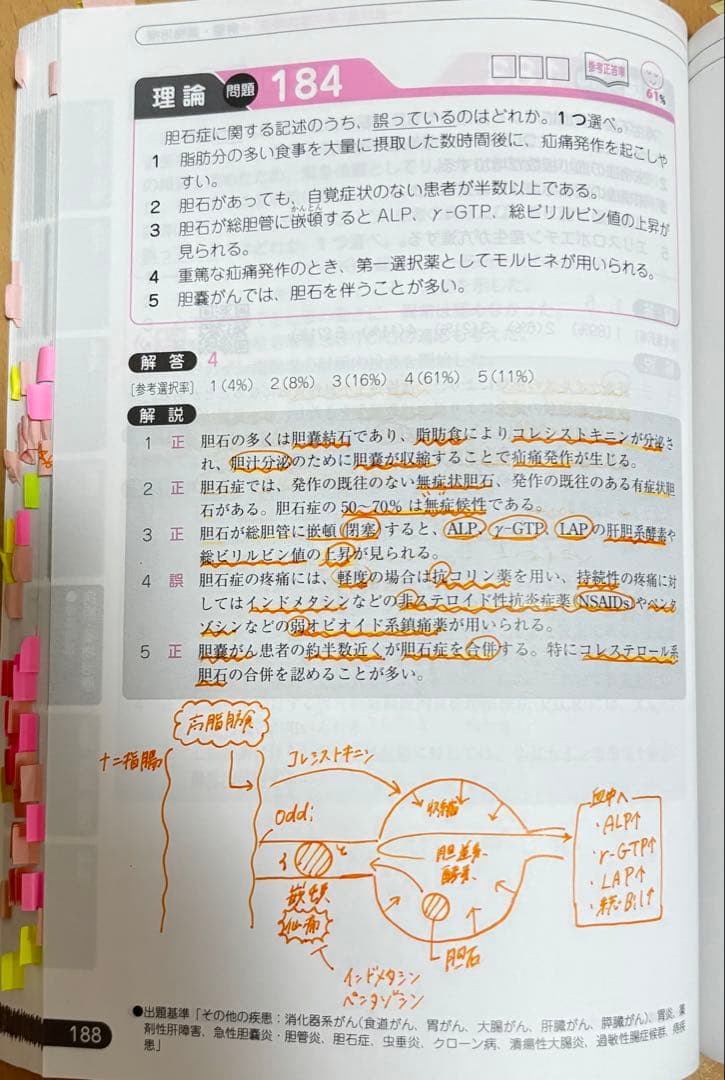 理論 問題 184
参考正答率
61%
胆石症に関する記述のうち、誤っているのはどれか。1つ選べ。
1 脂肪分の多い食事を大量に摂取した数時間後に、疝痛発作を起こしや
すい。
2 胆石があっても、自覚症状のない患者が半数以上である。
かんとん
3 胆石が総胆管に嵌頓するとALP、γ-GTP、総ビリルビン値の上昇が
見られる。
4 重篤な疝痛発作のとき、第一選択薬としてモルヒネが用いられる。
5 胆嚢がんでは、胆石を伴うことが多い。
解答 4
[参考選択率] 1(4%) 2(8%) 3(16%) 4(61%) 5(11%)
解説
1 正 胆石の多くは胆嚢結石であり、脂肪食によりコレシストキニンが分泌さ
れ、胆汁分泌のために胆嚢が収縮することで疝痛発作が生じる。
2 正 胆石症では、発作の既往のない無症状胆石、発作の既往のある有症状胆
石がある。胆石症の50〜70%は無症候性である。
3 正 胆石が総胆管に嵌頓(閉塞)すると、ALP、γ-GTP、LAPの肝胆系酵素や
総ビリルビン値の上昇が見られる。
4 誤 胆石症の疼痛には、軽度の場合は抗コリン薬を用い、持続性の疼痛に対
してはインドメタシンなどの非ステロイド性抗炎症薬(NSAIDs)やペンタ
ゾシンなどの弱オピオイド系鎮痛薬が用いられる。
5 正 胆嚢がん患者の約半数近くが胆石症を合併する。特にコレステロール系
胆石の合併を認めることが多い。
高脂肪食
十二指腸
コレシストキニン
Oddi
収縮
胆道系
酵素
嵌頓
疝痛
胆石
インドメタシン
ペンタゾシン
血中へ
・ALP↑
・γ-GTP↑
・LAP↑
・総Bil↑
●出題基準「その他の疾患：消化器系がん(食道がん、胃がん、大腸がん、肝臓がん、膵臓がん)、胃炎、薬
剤性肝障害、急性胆嚢炎・胆管炎、胆石症、虫垂炎、クローン病、潰瘍性大腸炎、過敏性腸症候群、痔疾
患」
188